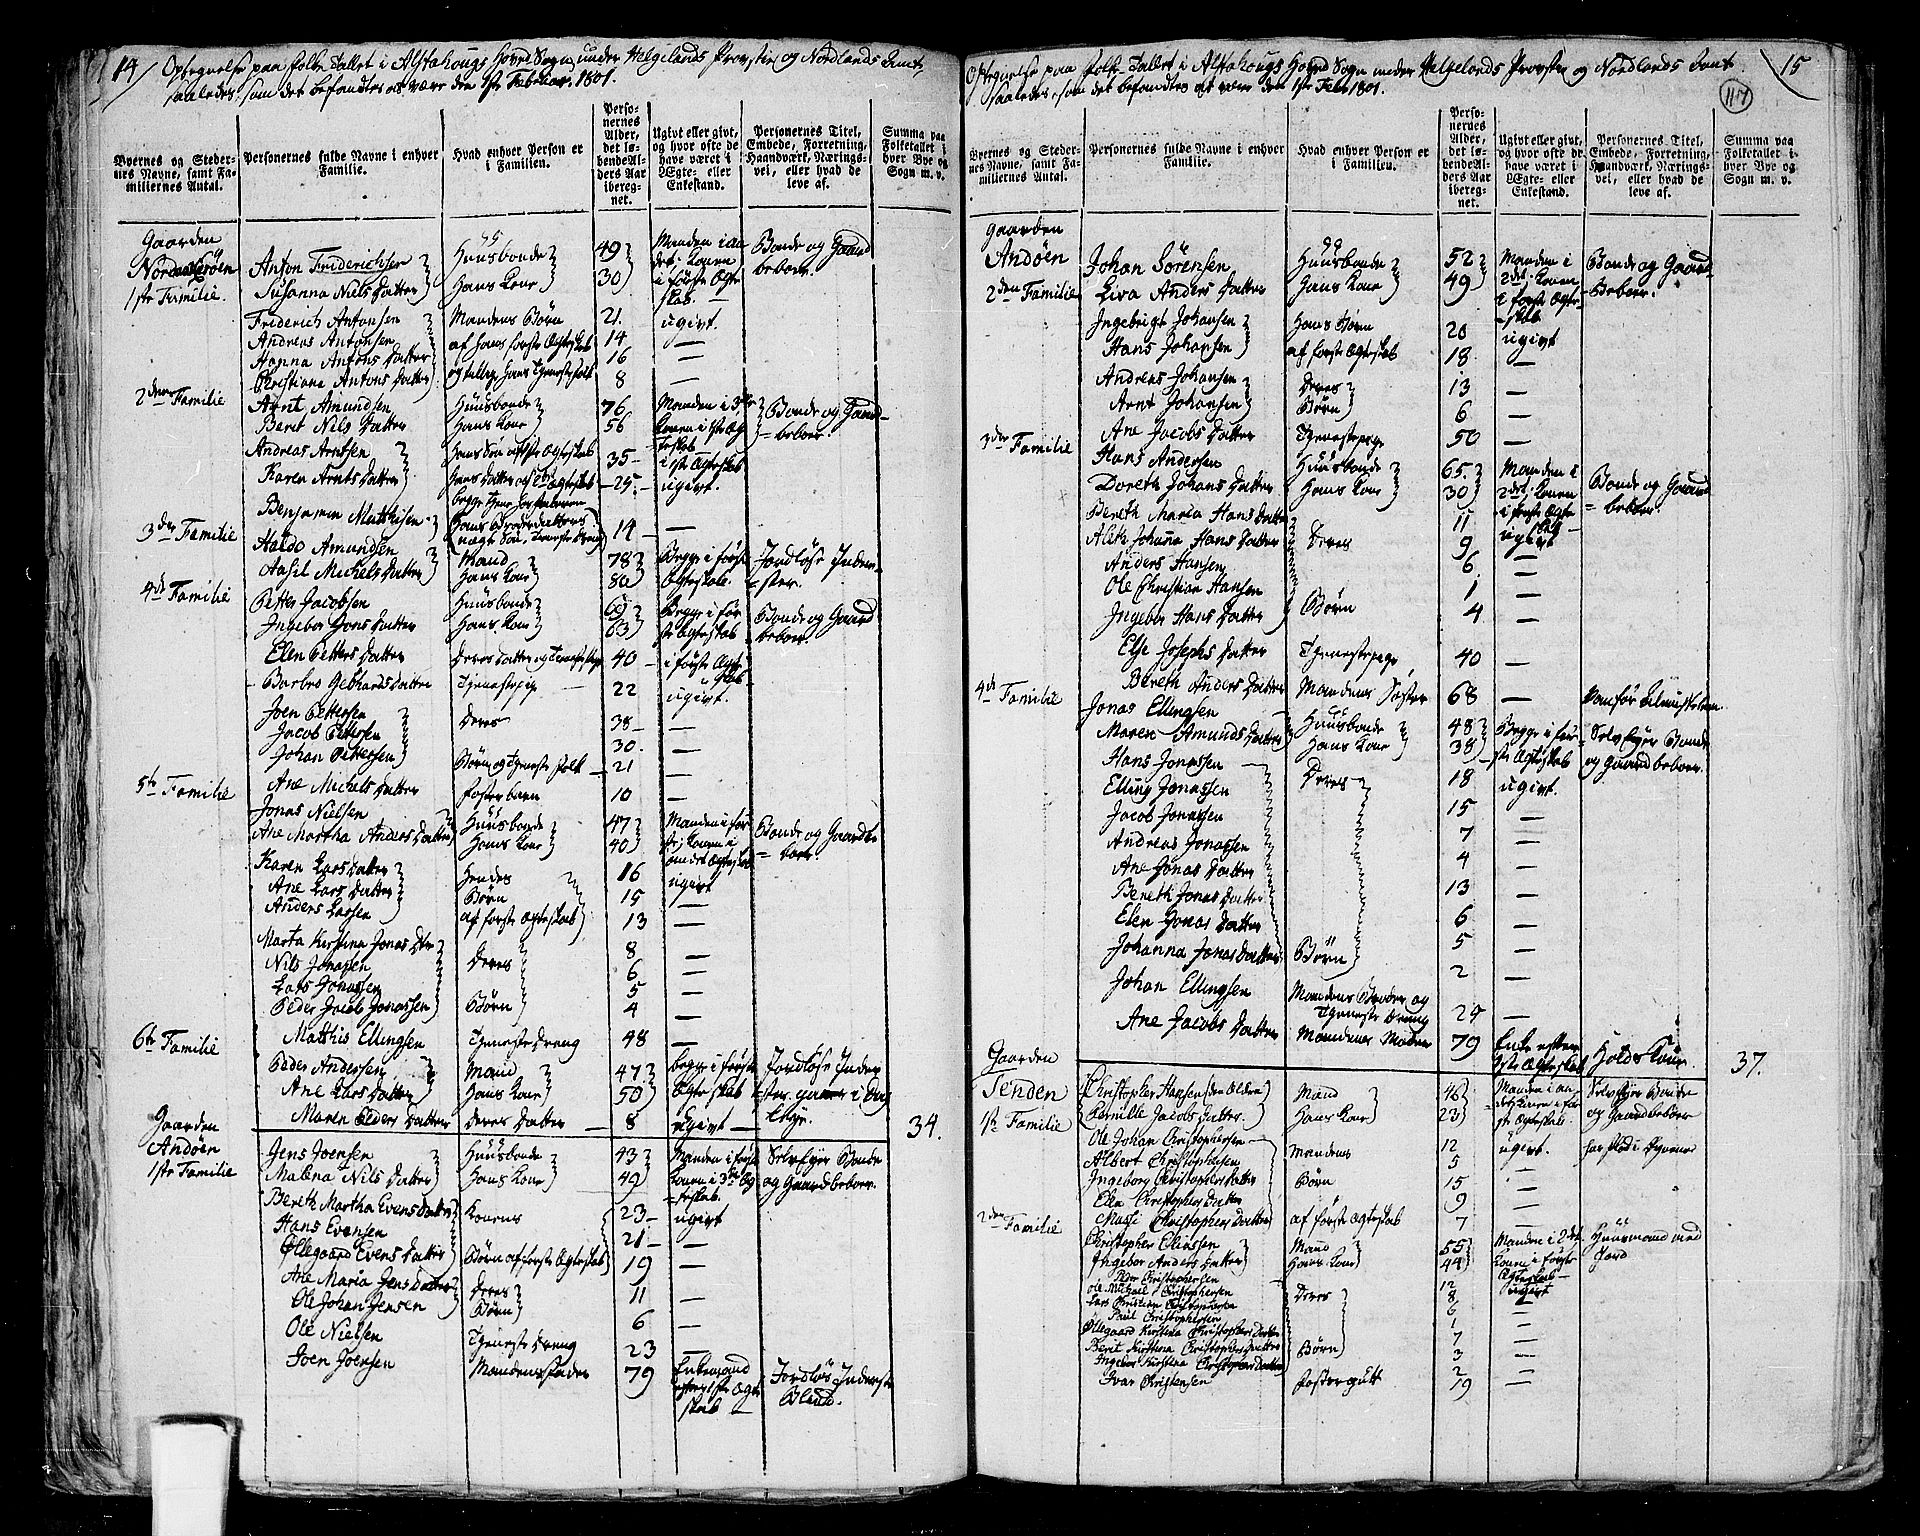 14/ Opregnelse paa Folke Tallet i Alstahougs Hoved Sogn under Helgelands Provstie og Nordlands Amt,
saaledes som det befandtes at være den 1ste Februar. 1801.
Byernes og Stedernes Navne, samt Familiernes Antal.
Personernes fulde Navne i enhver Familie.
Hvad enhver Person er i Familien.
Personernes Alder, det løbende Alders Aar iberegnet.
Ugivt eller givt, og hvor ofte de have været i Ægte- eller Enkestand.
Personernes Titel, Embede, Forretning, Haandværk, Næringsvei, eller hvad de leve af.
Summa paa Folketallet i hver Bye og Sogn m. v.
Gaarden
Anton Friderichsen Huusbonde 49 Bonde og Gaard
1ste Familie. Susanna Niels Datter Hans Kone 30 beboer
Friderich Antonsen Mandens Børn 21. ugivt.
Andreas Antonsen af hans første Ægteskab 14 —
Hanna Antons Datter 16 —
Christiana Antons Datter 8 —
2den Familie Arnt Amundsen Huusbonde 76 Manden i 3die Bonde og Gaard
Beret Nils Datter Hans Kone 56 Konen i 1ste Æg= =beboer.
Andreas Arntsen 35 — teskab
Karen Arnts Datter — 25. ugivt.
Benjamin Matthisen 14 —
3die Familie Haldo Amundsen Mand 78 Begge i første Jordløse Inder=
Aasil Michels Datter Hans Kone 80 Ægteskab. =ster.
4de Familie Petter Jacobsen Huusbonde 69 Begge i før= Bonde og Gaard
Ingebor Jons Datter Hans Kone 63 ste Ægteskab beboer.
Elen Petters Datter Deres Datter og Tienestepige 40 — i første Ægte
Barbro Gebhards Datter Tjenestepige 22 ugivt.
Joen Pettersen Deres 38 — —
Jacob Pettersen 30. —
Johan Pettersen Børn og Tjeneste folk 21 —
Ane Michels Datter Fosterbarn 10 —
5te Familie Jonas Nielsen Huusbonde 47 Manden i før= Bonde og Gaard=
Ane Martha Anders Datter Hans Kone 40 ste, Konen i =beboer.
Karen Lars Datter Hendes 16 andet Ægteskab
Ane Lars Datter Børn 15 ugivt
Anders Larsen af første Ægteskab 13 —
Marta Kirstina Jonas Dtr 8 —
Nils Jonassen Deres 6 —
Lars Jonassen 5 —
Peder Jacob Jonassen Børn 4 —
Matthis Ellingsen Tjeneste Dreng 48 —
6te Familie Peder Andersen Mand 47 Begge i første Jordløse Inder
Ane Lars Datter Hans Kone 50 Ægteskab
Maren Peders Datter Deres Datter 8 Ugivt — 34.
Gaarden
Andöen Jens Joensen Huusbonde 43 Manden i første Selvejer Bonde
1ste Familie Malena Nils Datter Hans Kone 49 Konen i 3die Æg og Gaardbeboer.
=teskab.
Bereth Martha Evens Datter Konens 23 — ugivt
Hans Evensen 21 — —
Øllegaard Evens Datter Børn af første Ægteskab 19 —
Ane Maria Jens Datter Deres 11 —
Ole Johan Jensen Børn 6 —
Ole Nielsen Tjeneste Dreng 23 —
Joen Joensen Mandens Fader 79 Enkemand Jordløs Inderste
efter 1ste Ægte Blind.
skab —
Opregnelse paa Folke Tallet i Alstahougs Hoved Sogn under Helgelands Provstie og Nordlands Amt 15
saaledes, som det befandtes at være den 1ste Febr. 1801.
117
Byernes og Stedernes Navne, samt Familiernes Antal.
Personernes fulde Navne i enhver Familie.
Hvad enhver Person er i Familien.
Personernes Alder, det løbende Alders Aar iberegnet.
Ugivt eller givt, og hvor ofte de have været i Ægte- eller Enkestand.
Personernes Titel, Embede, Forretning, Haandværk, Næringsvei, eller hvad de leve af.
Summa paa Folketallet i hver Bye og Sogn m. v.
Gaarden
Andöen Johan Sörensen Huusbonde 52 Manden i Bonde og Gaard
2den Familie Liva Anders Datter Hans Kone 49 2det, Konen =beboer.
i første Ægte=
Ingebrigt Johansen Hans Børn 20 skab
Hans Johansen af første Ægteskab 18 ugivt
Andreas Johansen Deres 13 —
Arnt Johansen Børn 6 —
Ane Jacobs Datter Tjenestepige 50 —
3die Familie Hans Andersen Huusbonde 65. Manden i Bonde og Gaard
Dorethe Johans Datter Hans Kone 30 2det, Konen =beboer.
i første Ægte
Bereth Maria Hans Datter 11 skab
Alith Johanna Hans Datter Deres 9 ugivt
Anders Hansen 6 —
Ole Christian Hansen 1 —
Ingebor Hans Datter Børn 4 —
Else Josephs Datter Tjenestepige 40 —
Bereth Anders Datter Mandens Søster 68 —
4de Familie Jonas Ellingsen Huusbonde 48 Begge i før= Selvejer Bonde
Maren Amunds Datter Hans Kone 38 ste Ægteskab og Gaardbeboer.
Hans Jonassen Deres 18 ugivt.
Elling Jonassen 15 —
Jacob Jonassen 7 —
Andreas Jonassen 4 —
Ane Jonas Datter 13 —
Bereth Jonas Datter 6 —
Elen Jonas Datter 5 —
Johanna Jonas Datter Børn 2 —
Johan Ellingsen Mandens Broder og
Tjeneste Dreng 24 —
Ane Jacobs Datter Mandens Moder 79 Enke efter
1ste Ægteskab 37.
Gaarden
Tenden Christopher Hansen (den Ældre) Mand 46 Manden i an Selvejer Bonde
1ste Familie Pernille Jacobs Datter. Hans Kone 23 det, Konen i før og Gaardbeboer
ste Ægteskab.
Ole Johan Christophersen Mandens 12 ugivt.
Albert Christophersen 5 —
Ingeborg Christophers Datter Børn 15 —
Elen Christophers Datter 9 —
Massi Christophers Datter af første Ægteskab 7 —
2den Familie Christopher Eliassen Mand 55 Manden i 2det Huusmand med
Ingebor Anders Datter Hans Kone 44 Konen i første Jord
Ægteskab
Peder Christophersen 12 ugivt
Ole Michael Christophersen Deres 8 —
Lars Christian Christophersen 6 —
Paul Christophersen 1 —
Øllegaard Kirstina Christophers Datter 7 —
Berit Kirstina Christophers Datter Børn 3 —
Ingebor Kirstina Christophers Datter 2 —
Ivar Christensen Fostergutt 19 —